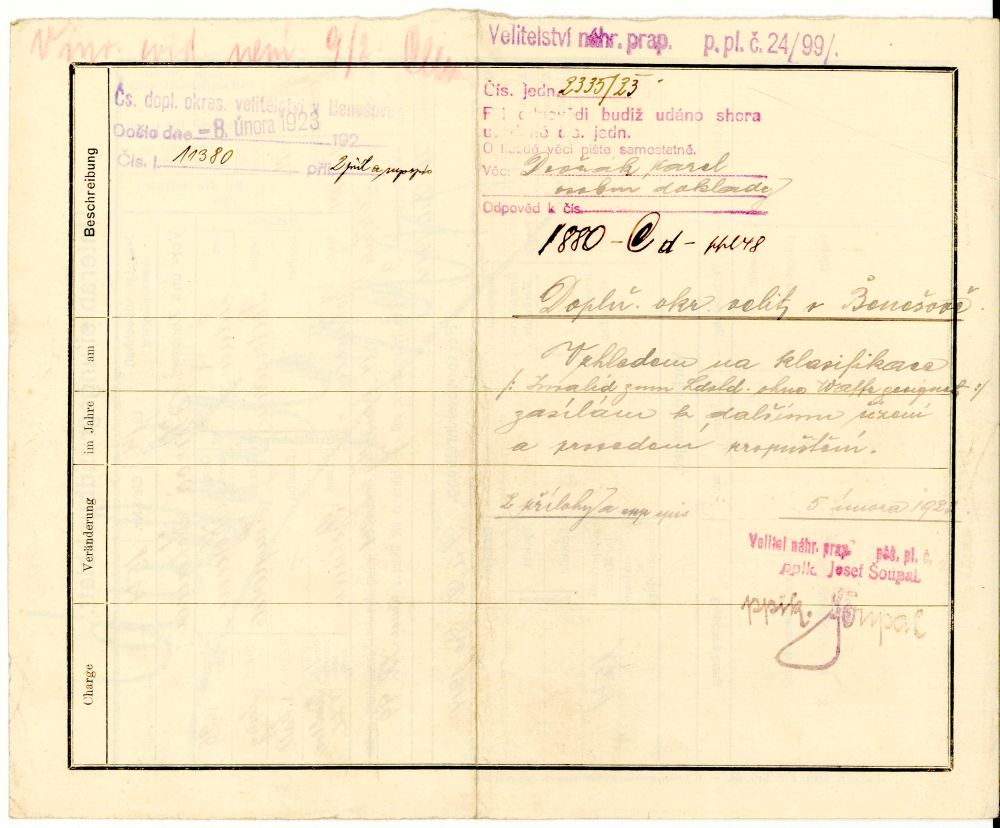 V inv. evid. není 9/2
Velitelství náhr. prap. p. pl. č. 24/99/.
Čs. dopl. okres. velitelství v Benešově
Došlo dne -8. února 1923 192
Čís. j. 11380 příl. 2 příl a
Čís. jedn. 2335/23
budiž udáno shora
čís. jedn.
O každé věci pište samostatně.
Věc: Dvořák Karel
osobní doklady
Odpověď k čís.
1880 - C d - ppl 48
Doplň. okr. velit. v Benešově.
Vzhledem na klasifikace
/: Invalid zum Ldsld. ohne Waffe geeignet :/
zasílám k dalšímu řízení
a provedení propuštění.
2 přílohy a
5. února 192
Velitel náhr. prap. pěš. pl. č.
pplk. Josef Šoupal
pplk. Šoupal
Beschreibung
am
im Jahre
Veränderung
Charge